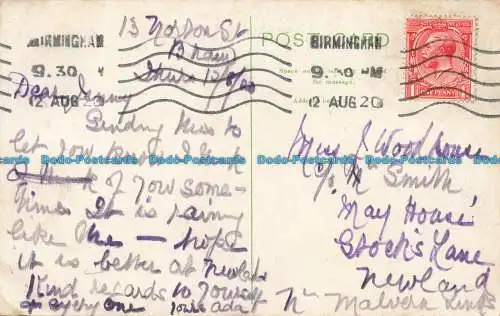 13 Norton St
B'ham
Thurs 12/8/20
Dear Jenny
Sending this to
let you know I think
of you some-
times It is rainy
like the — hope
it is better at Newland
Kind regards to yourself
& everyone yours Ada
POST CARD
BIRMINGHAM
9.30 PM
12 AUG 20
BIRMINGHAM
9.30 PM
12 AUG 20
ONE PENNY
Miss J Woodhouse
c/o Mrs Smith
May House
Stocks Lane
Newland
Nr Malvern Links
Dodo-Postcards Dodo-Postcards Dodo-Postcards Dodo-Postcards